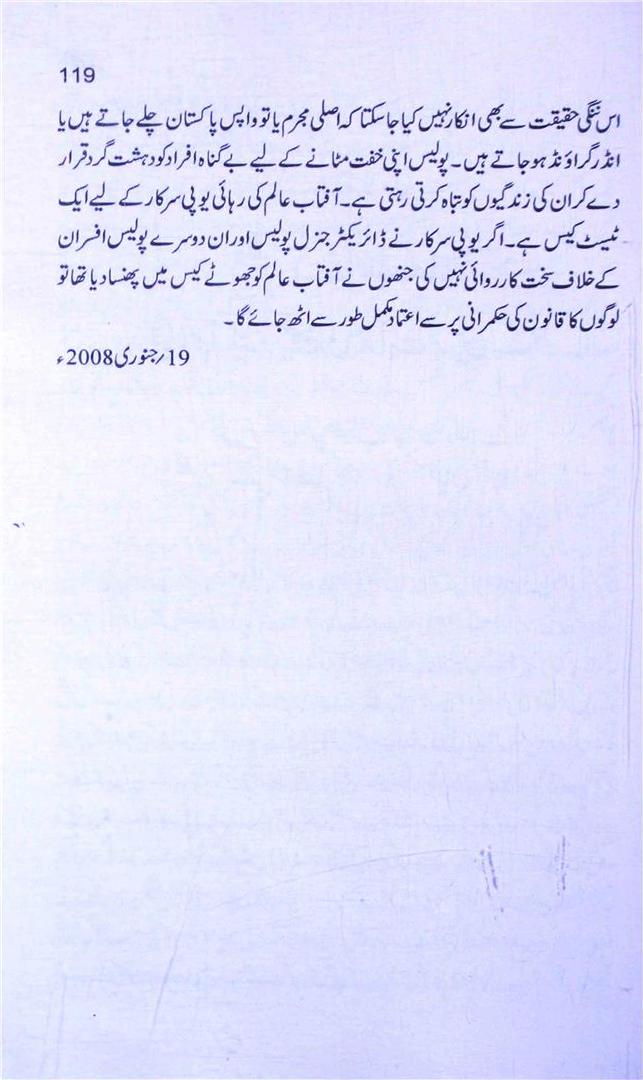 119
اس ننگی حقیقت سے بھی انکار نہیں کیا جا سکتا کہ اصلی مجرم یا تو واپس پاکستان چلے جاتے ہیں یا
انڈر گراؤنڈ ہو جاتے ہیں۔ پولیس اپنی خفت مٹانے کے لیے بے گناہ افراد کو دہشت گرد قرار
دے کر ان کی زندگیوں کو تباہ کرتی رہتی ہے۔ آفتاب عالم کی رہائی یو پی سرکار کے لیے ایک
ٹیسٹ کیس ہے۔ اگر یو پی سرکار نے ڈائریکٹر جنرل پولیس اور ان دوسرے پولیس افسران
کے خلاف سخت کارروائی نہیں کی جنھوں نے آفتاب عالم کو جھوٹے کیس میں پھنسا دیا تھا تو
لوگوں کا قانون کی حکمرانی پر سے اعتماد مکمل طور سے اٹھ جائے گا۔
19/جنوری 2008ء